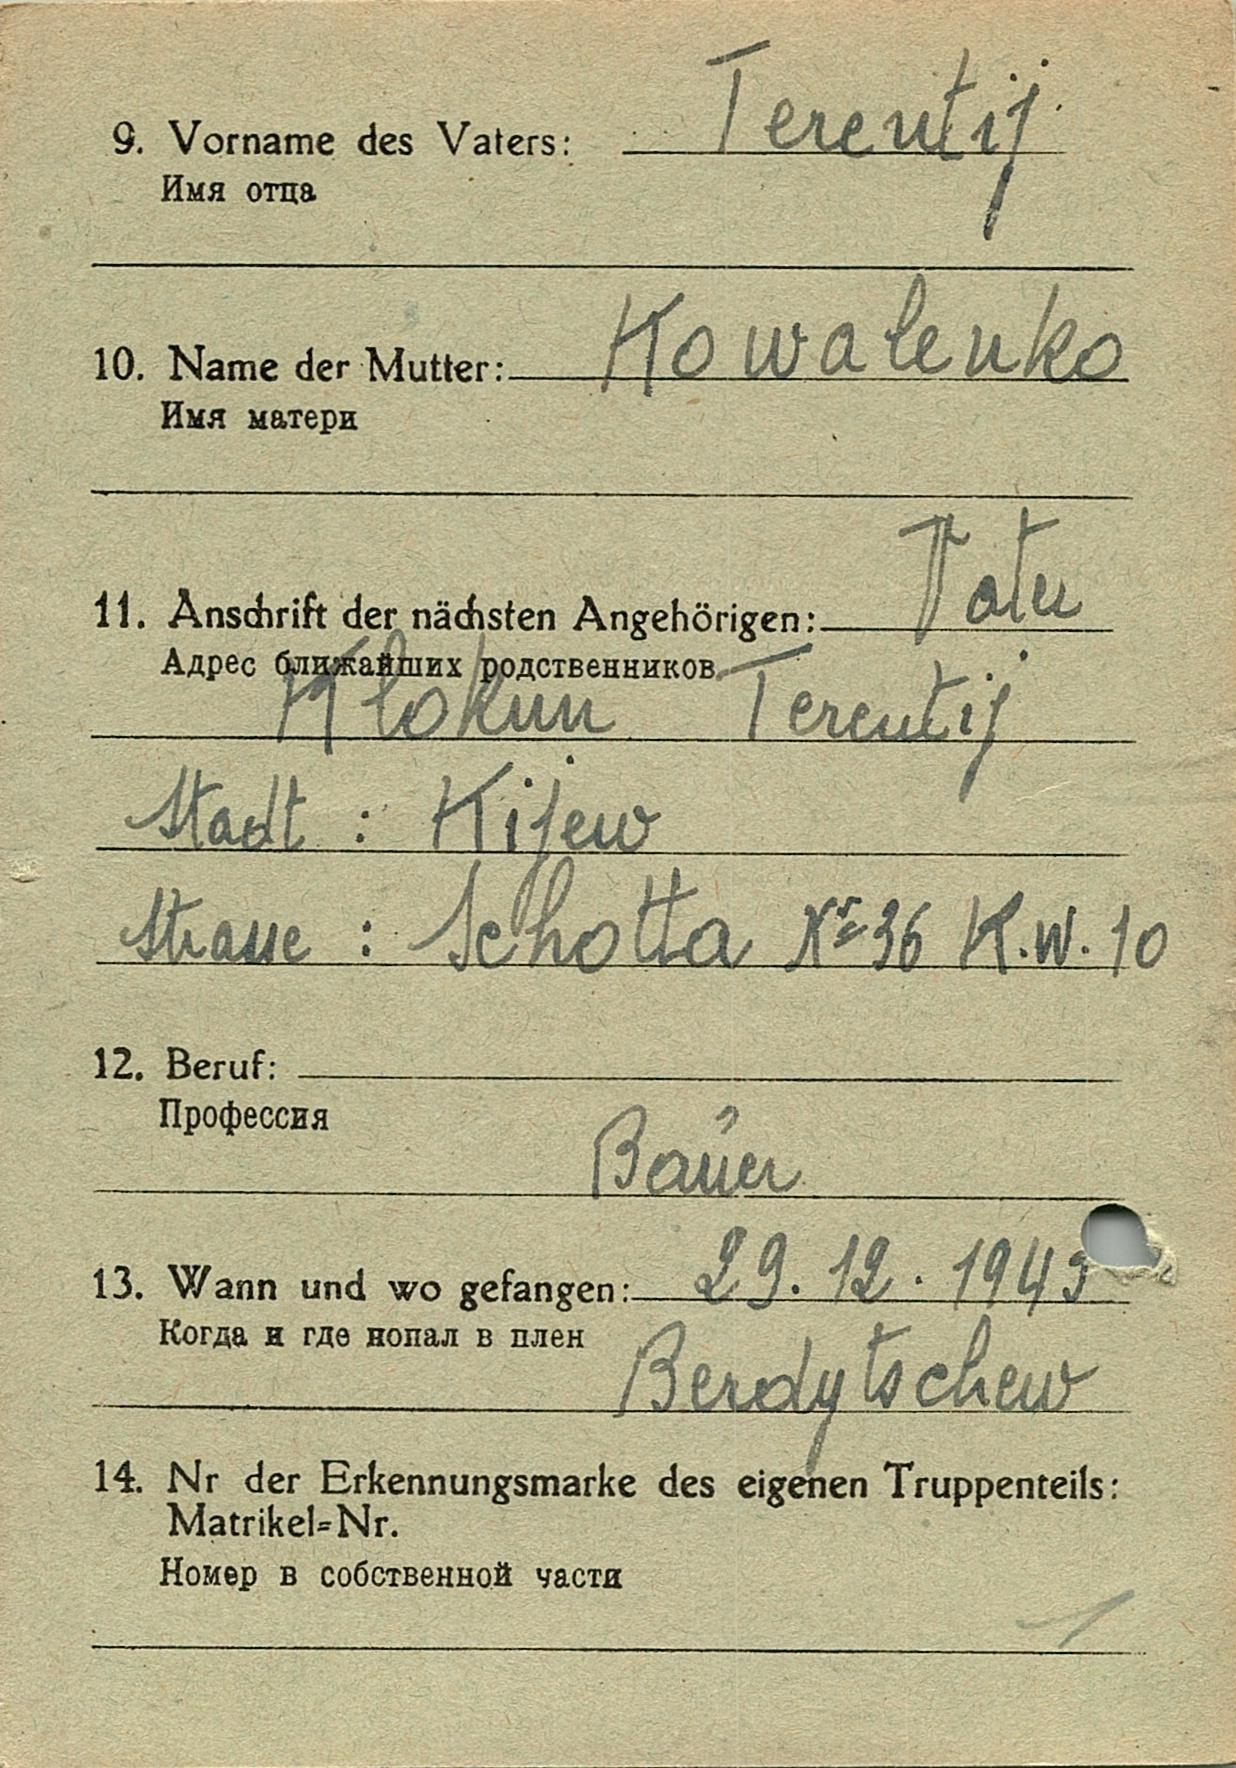 9. Vorname des Vaters: Terentij
Имя отца
10. Name der Mutter: Kowalenko
Имя матери
11. Anschrift der nächsten Angehörigen: Vater
Адрес ближайших родственников
Klokun Terentij
Stadt : Kijew
Strasse : Schotta Nr 36 K.W. 10
12. Beruf:
Профессия
Bauer
13. Wann und wo gefangen: 29.12.1943
Когда и где попал в плен
Berdytschew
14. Nr der Erkennungsmarke des eigenen Truppenteils:
Matrikel=Nr.
Номер в собственной части